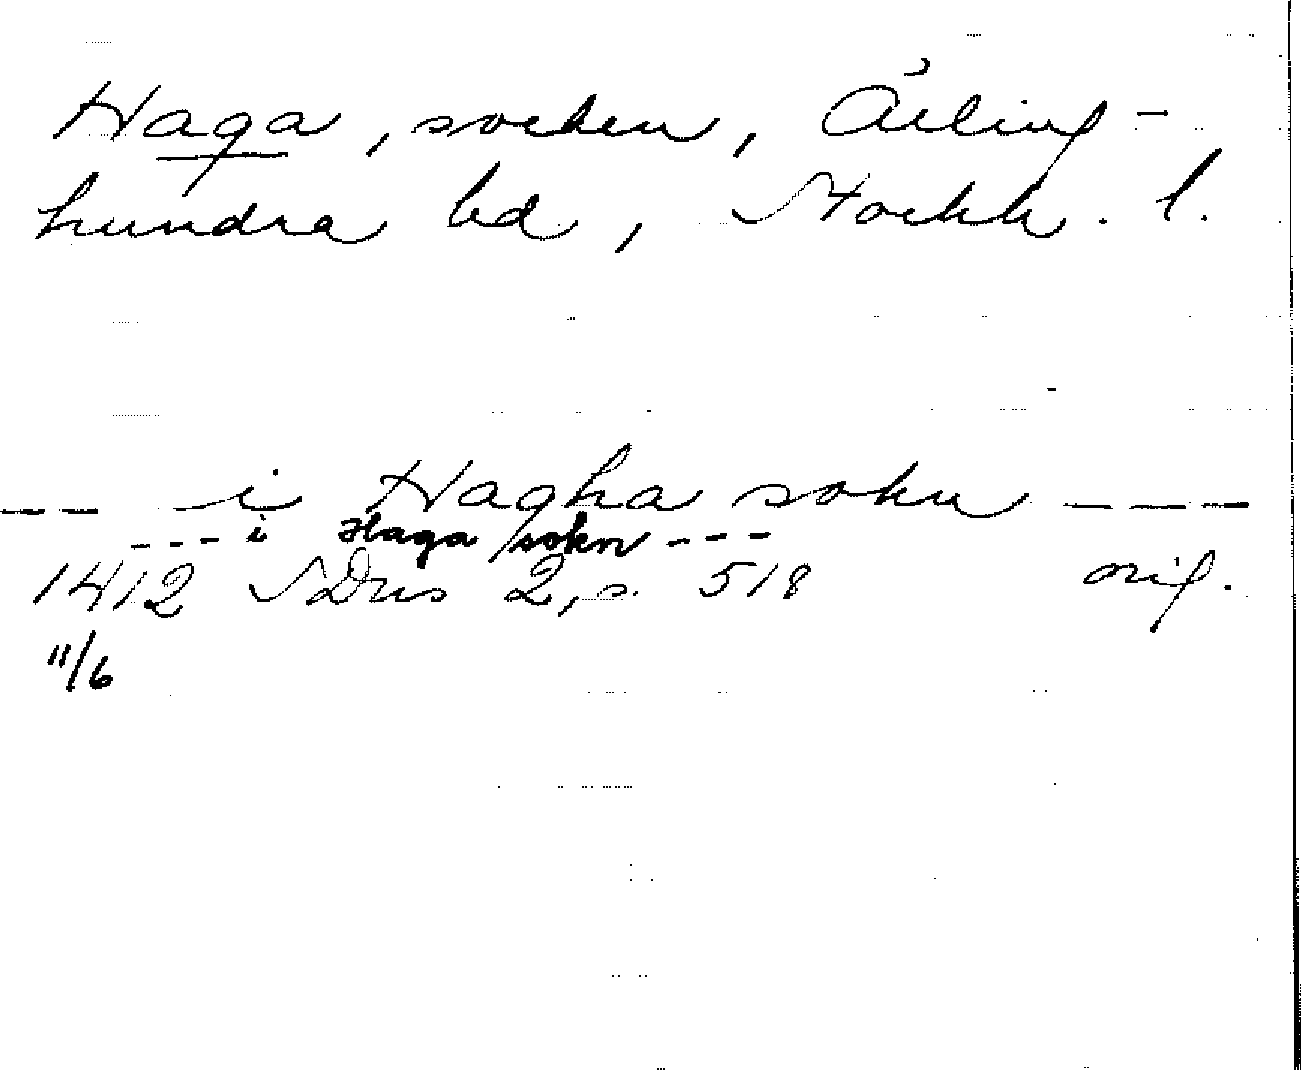 Haga, socken, Ärling-
hundra hd, Stockh. l.
--- i Hagha sokn ---
--- i Haga sokn ---
1412 SDns 2, s. 518 orig.
11/6